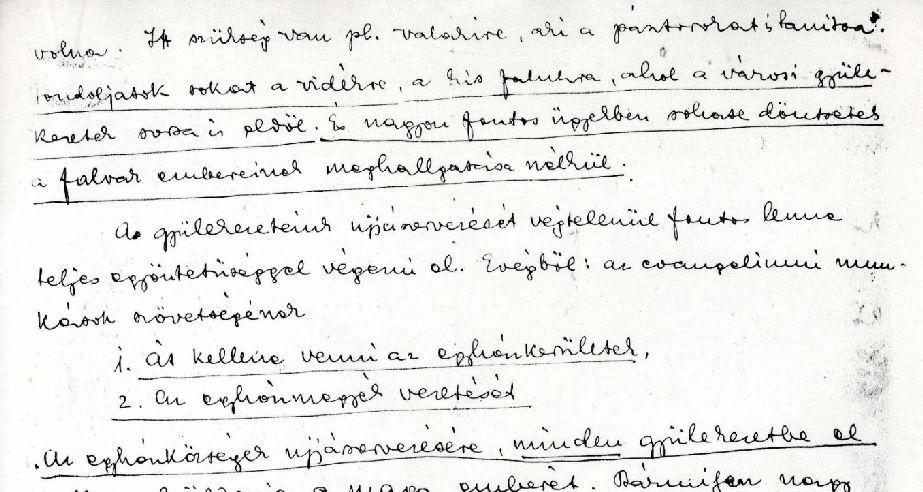 volna. Itt szükség van pl. valakire, aki a pásztorokat is tanítsa.
Gondoljatok sokat a vidékre, a kis falukra, ahol a városi gyüle-
kezetek sorsa is eldől. És nagyon fontos ügyekben sohase döntsetek
a falvak embereinek meghallgatása nélkül.
Az gyülekezeteink ujjászervezését végtelenül fontos lenne
teljes egyöntetűséggel végezni el. Evégből: az evangéliumi mun-
kások szövetségének
1. Át kellene venni az egyházkerületek,
2. Az egyházmegyék vezetését
Az egyházközségek ujjászervezésére, minden gyülekezetbe el
a maga emberét. Bármilyen nagy